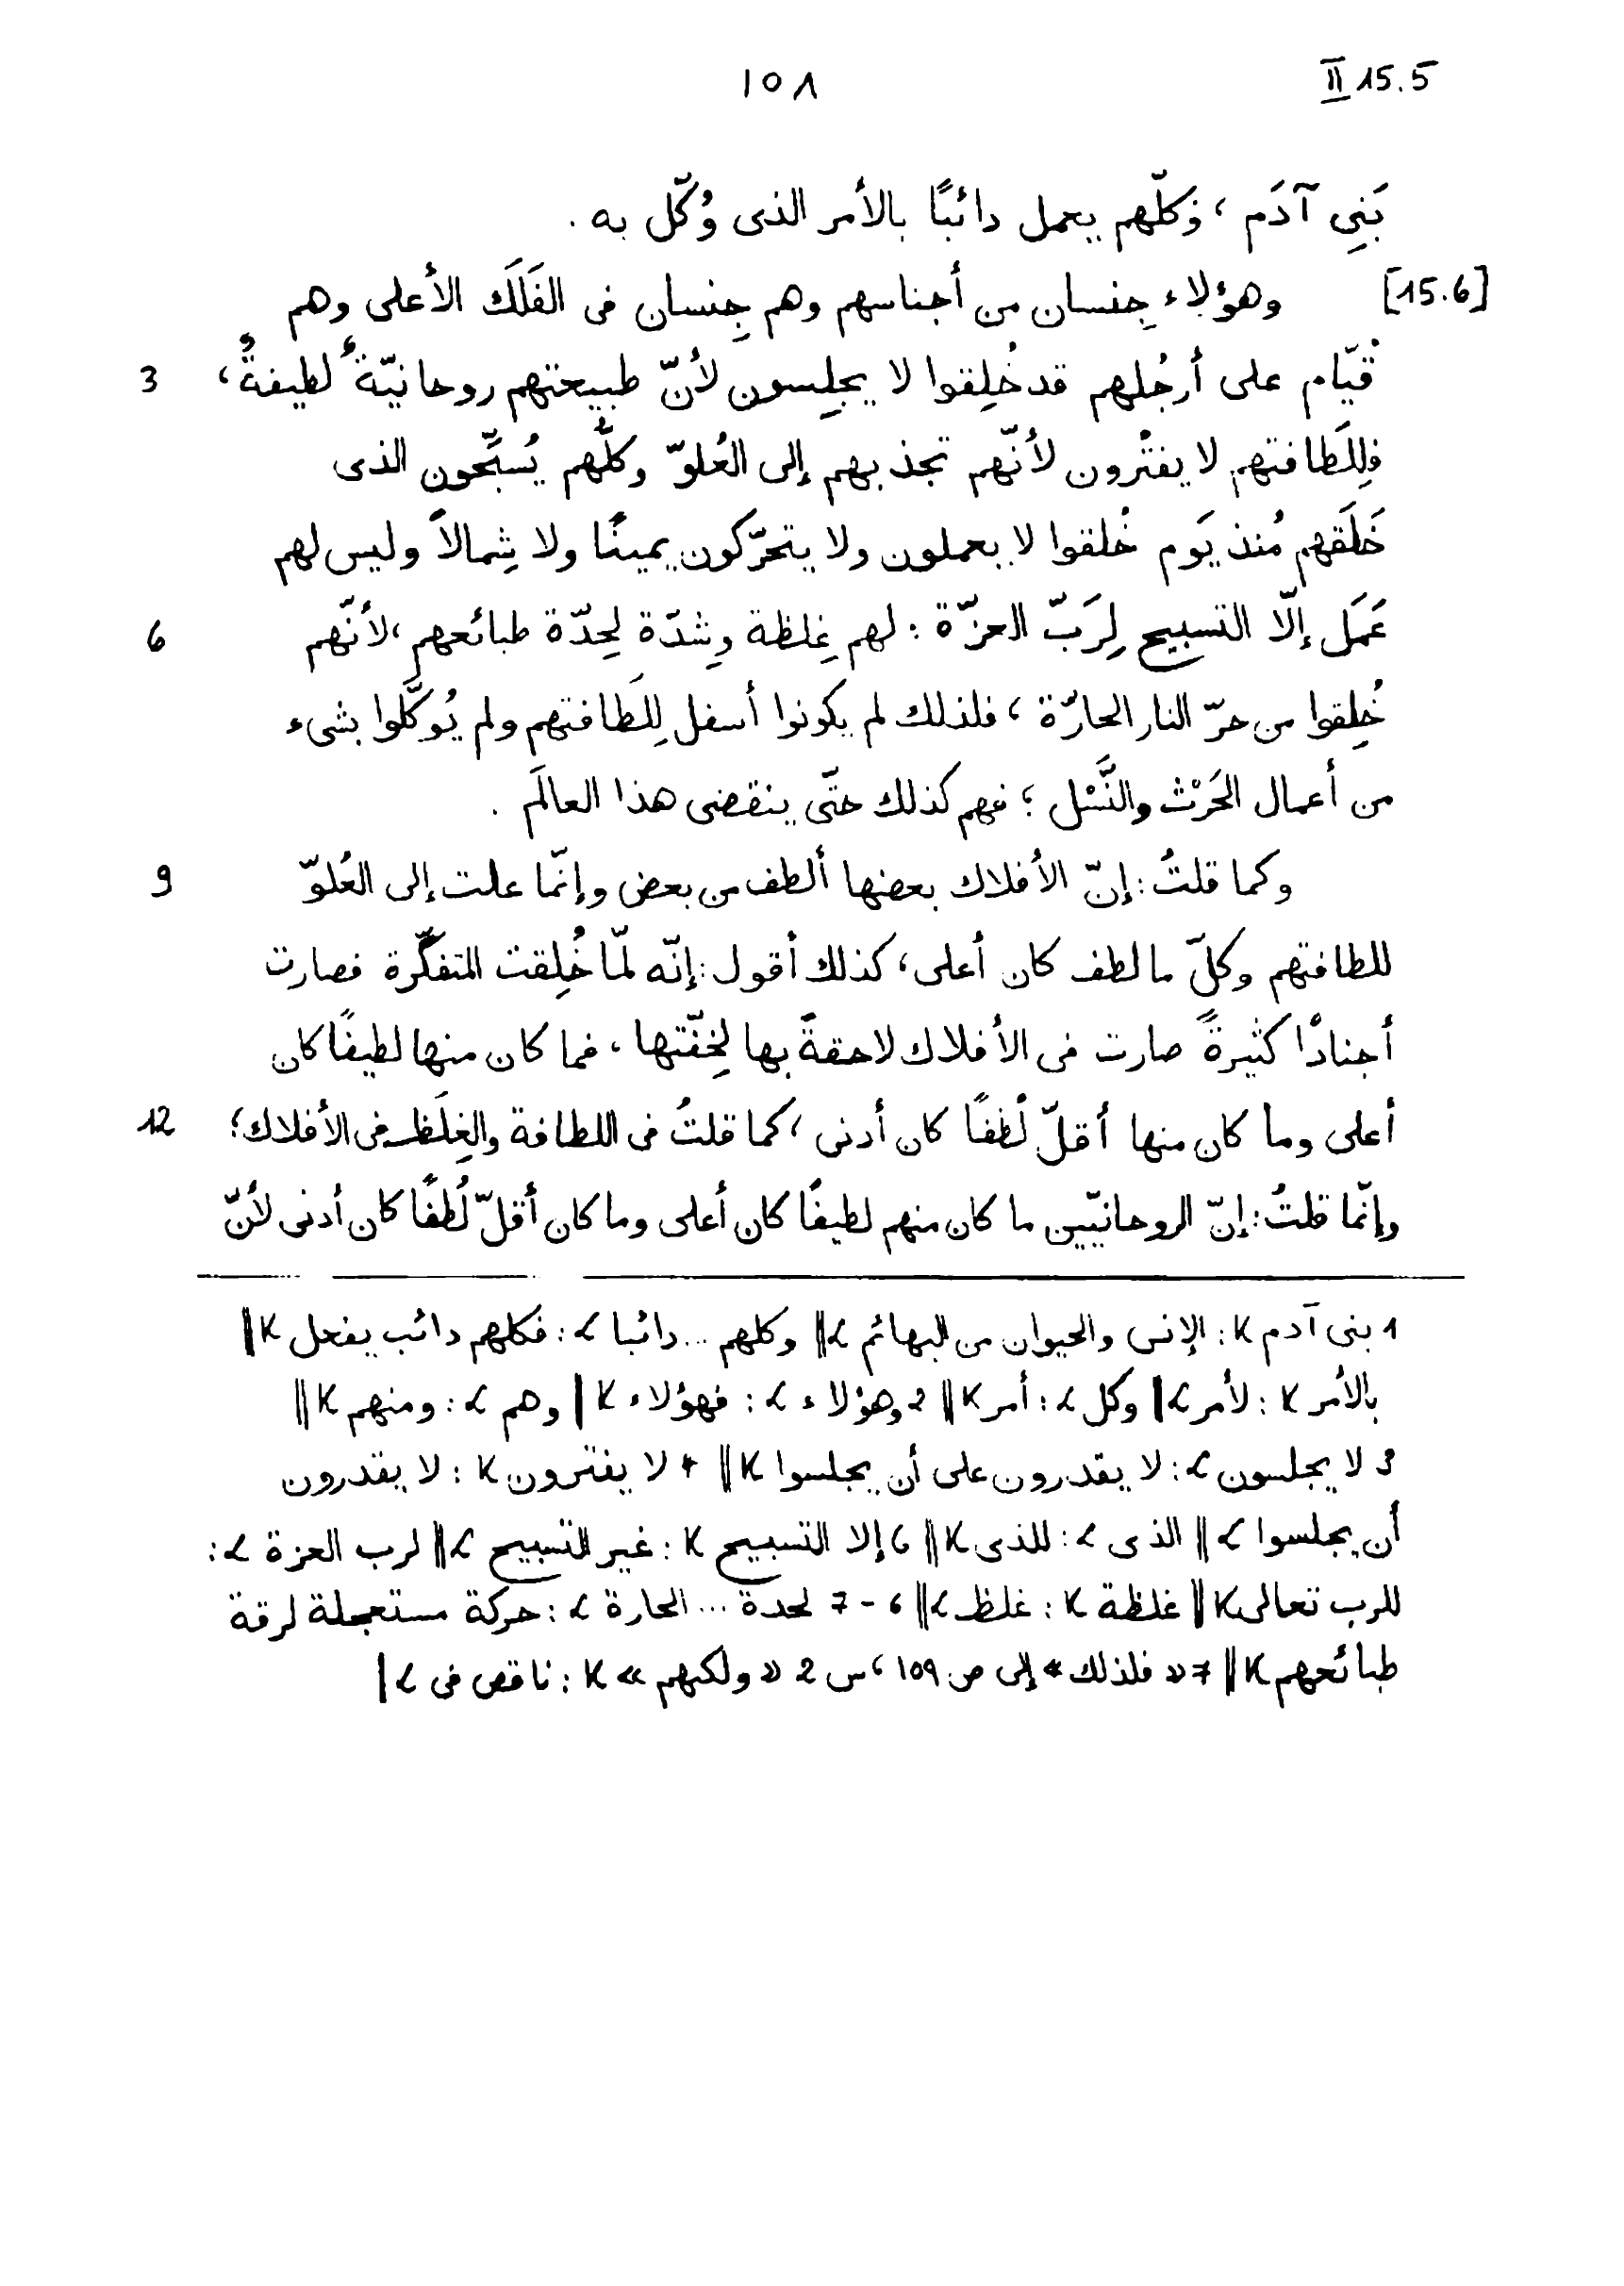 ١٥٨ II 15.5
بَنِي آدَم ، وَكلّهم يعمل دائبًا بالأمر الذى وُكّل به .
[15.6] وهؤلاء جِنسان من أجناسهم وهم جِنسان فى الفَلَك الأعلى وهم
قُيّام على أرجُلهم قد خُلِقوا لا يجلِسون لأنّ طبيعتهم روحانيّةٌ لطيفةٌ ، 3
فلِلَطافتهم لا يفتُرون لأنّهم تجذبهم إلى العُلوّ وكلّهم يُسبَّحون الذى
خَلَقهم مُنذ يَوم خُلقوا لا يعملون ولا يتحرّكون يمينًا ولا شِمالاً وليس لهم
عَمَل إلّا التسبيح لِرَبّ العزّة : لهم غِلظة وشِدّة لحِدّة طبائعهم ، لأنّهم 6
خُلِقوا من حرّ النار الحارّة ، فلذلك لم يكونوا أسفل لِلَطافتهم ولم يُوكَّلوا بشىء
من أعمال الحَرْث والنَّسْل ؛ فهم كذلك حتّى ينقضى هذا العالَم .
وكما قلتُ : إنّ الأفلاك بعضها ألطف من بعض وإنّما علت إلى العُلوّ 9
للطافتهم وكلّ ما لطف كان أعلى ، كذلك أقول : إنّه لمّا خُلِقت المتفكّرة فصارت
أجنادًا كثيرةً صارت فى الأفلاك لاحقةً بها لِخفّتها ، فما كان منها لطيفًا كان
أعلى وما كان منها أقلّ لُطفًا كان أدنى ، كما قلتُ فى اللطافة والغِلَظ فى الأفلاك ؛ 12
وإنّما قلتُ : إنّ الروحانيّين ما كان منهم لطيفًا كان أعلى وما كان أقلّ لُطفًا كان أدنى لأنّ
1 بنى آدم K : الإنس والحيوان من البهائم L || وكلهم ... دائبا L : فكلهم دائب يفعل K ||
بالأمر K : لأمر L | وكل L : أمر K || 2 وهؤلاء L : فهؤلاء K | وهم L : ومنهم K ||
3 لا يجلسون L : لا يقدرون على أن يجلسوا K || 4 لا يفترون K : لا يقدرون
أن يجلسوا L || الذى L : للذى K || 6 إلا التسبيح K : غير التسبيح L || لرب العزة L :
للرب تعالى K || غلظة K : غلظ L || 6 - 7 لحدة ... الحارة L : حركة مستعجلة لرقة
طبائعهم K || 7 « فلذلك » إلى ص ١٥٩ ، س 2 « ولكنهم » K : ناقص فى L |